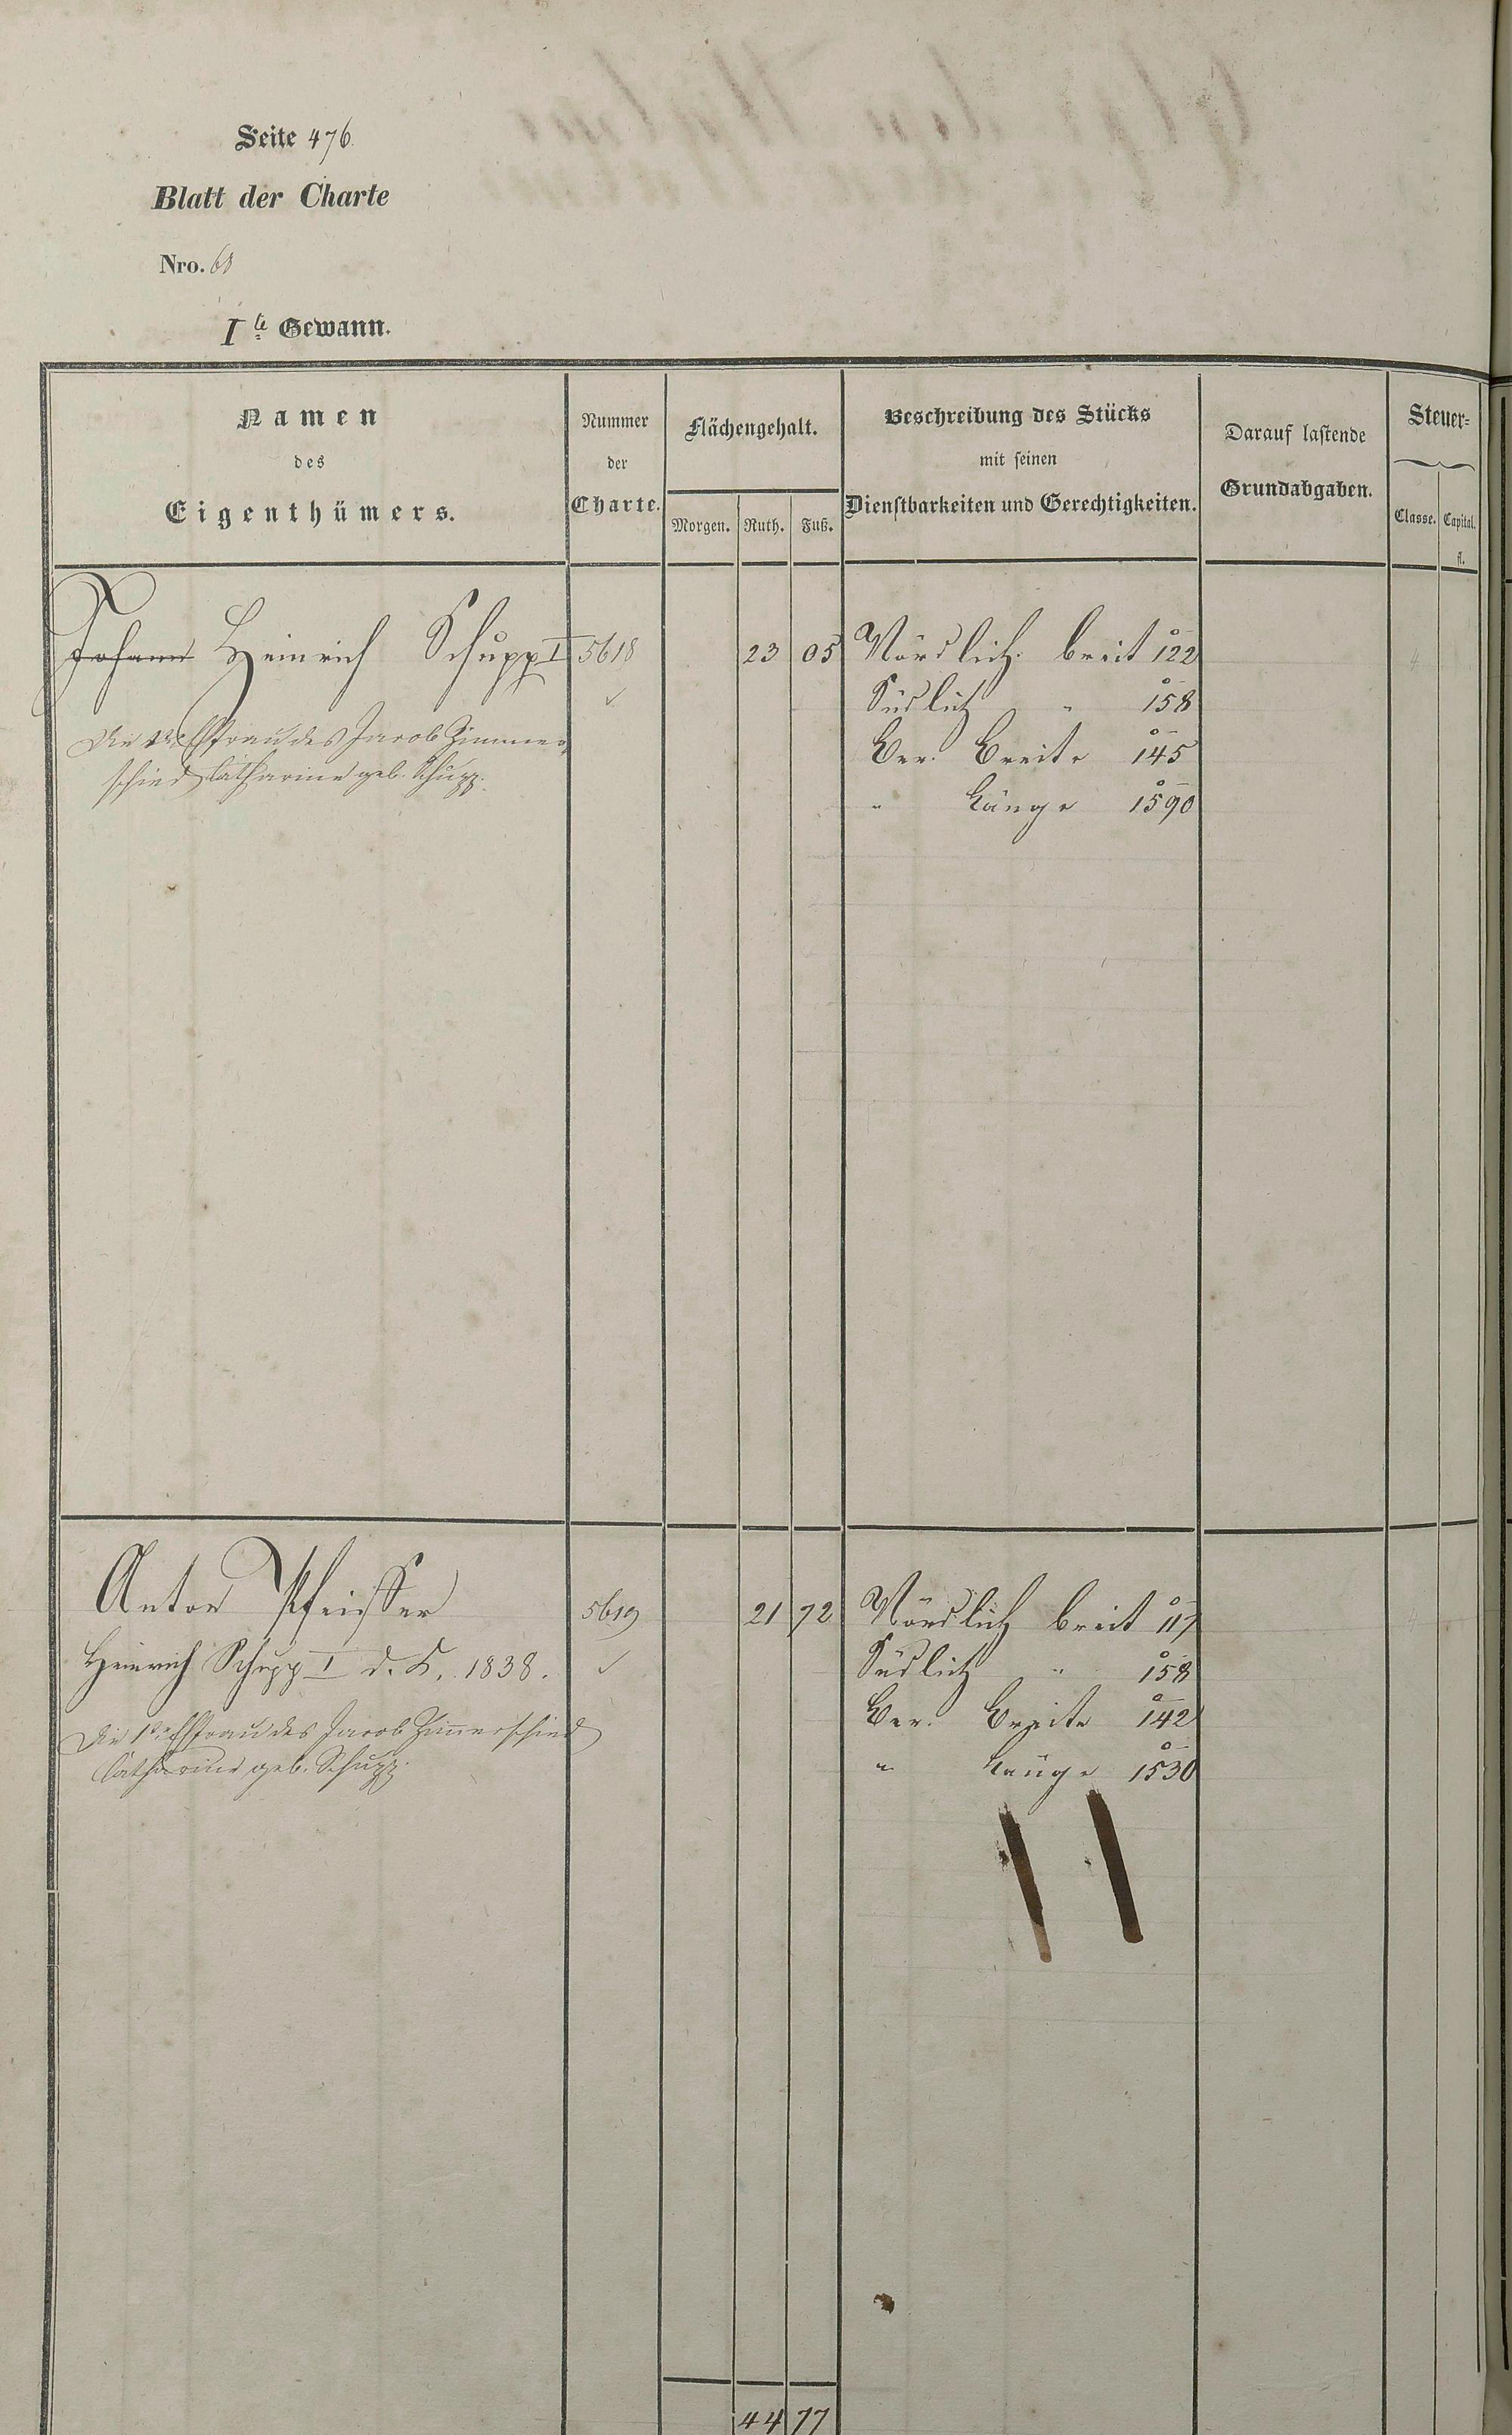 Seite 476.
Blatt der Charte
Nro. 68
I te Gewann.
Namen
des
Eigenthümers.
Nummer
der
Charte.
Flächengehalt.
Morgen. Ruth. Fuß.
Beschreibung des Stücks
mit seinen
Dienstbarkeiten und Gerechtigkeiten.
Darauf lastende
Grundabgaben.
Steuer-
Classe. Capital.
fl.
Johann Heinrich Schupp I 5618 23 05 Nördlich breit 122
Südlich " 158
Die Ehefrau des Jacob Zimmer- Ber. Breite 145
schied Catharine geb. Schupp. " Länge 1590
Anton Pfeiffer 5619 21 72 Nördlich breit 117
Heinrich Schupp I d. K. 1838. Südlich " 158
Die 1te Ehefrau des Jacob Zimmerschied Ber. Breite 142
Catharine geb. Schupp. " Länge 1530
44 77